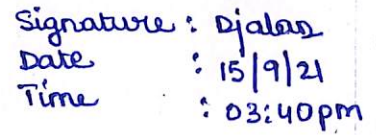 Signature : Djalas
Date : 15/9/21
Time : 03:40pm